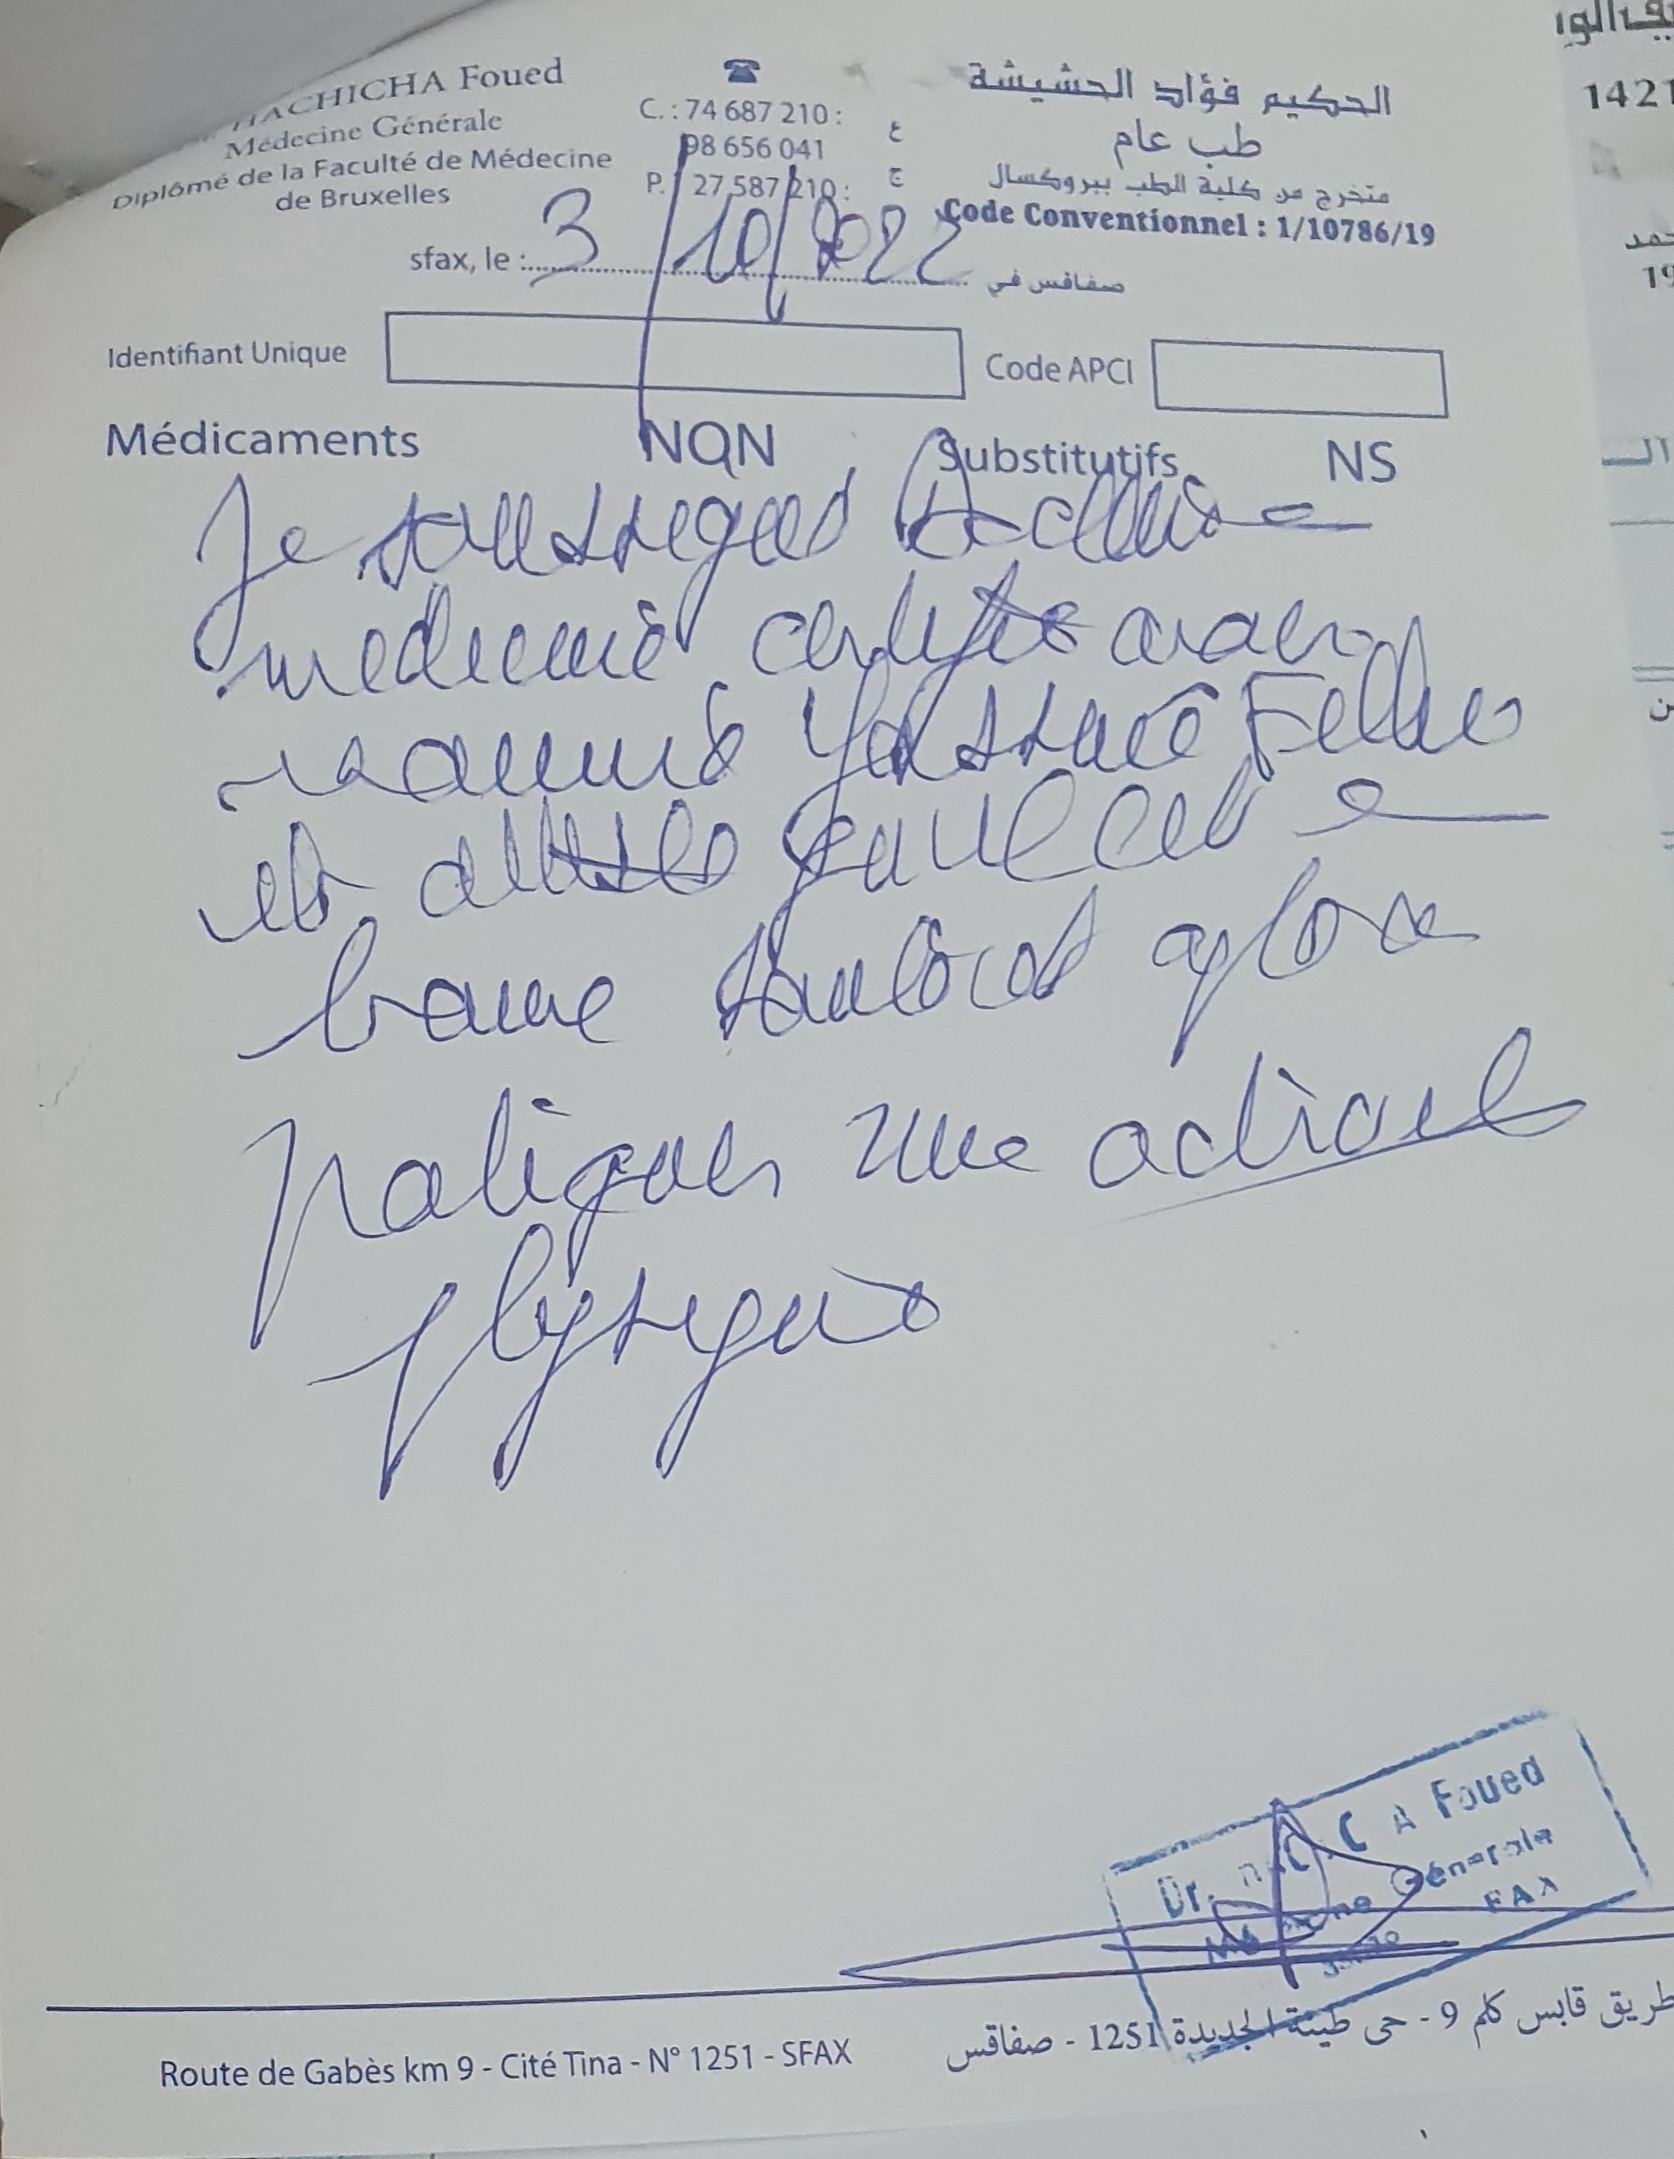 HACHICHA Foued
Médecine Générale
Diplômé de la Faculté de Médecine
de Bruxelles
C. : 74 687 210 : ع
98 656 041
P. 27 587 210 : ج
الحكيم فؤاد الحشيشة
طب عام
متخرج من كلية الطب ببروكسال
Code Conventionnel : 1/10786/19
sfax, le : 3/10/2022 صفاقس في
Identifiant Unique Code APCI
Médicaments NQN Substitutifs NS
Je soussigné Docteur
médecine certifie avoir
examiné Yassine Felles
et
bonne santé et
pratiquer une activité
physique
Dr. Foued
Générale
SFAX
Route de Gabès km 9 - Cité Tina - N° 1251 - SFAX
طريق قابس كلم 9 - حي طينة الجديدة 1251 - صفاقس
1421
19